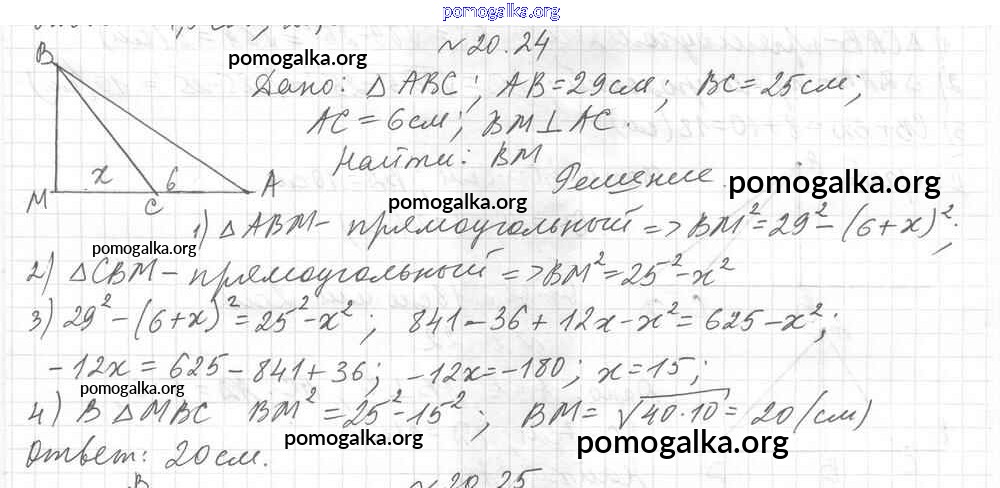 pomogalka.org
N 20.24
pomogalka.org
B
Дано: △ ABC; AB=29см; BC=25см;
AC=6см; BM⊥AC
Найти: BM
Решение.
pomogalka.org
pomogalka.org
x 6 A
M C
1) △ ABM - прямоугольный => BM²=29²-(6+x)²;
pomogalka.org
2) △CBM - прямоугольный => BM²=25²-x²
3) 29²-(6+x)²=25²-x²; 841-36+12x-x²=625-x²;
-12x=625-841+36; -12x=-180; x=15;
pomogalka.org
4) В △MBC BM²=25²-15²; BM=√40·10=20(см)
pomogalka.org
pomogalka.org
Ответ: 20см.
B N 20.25